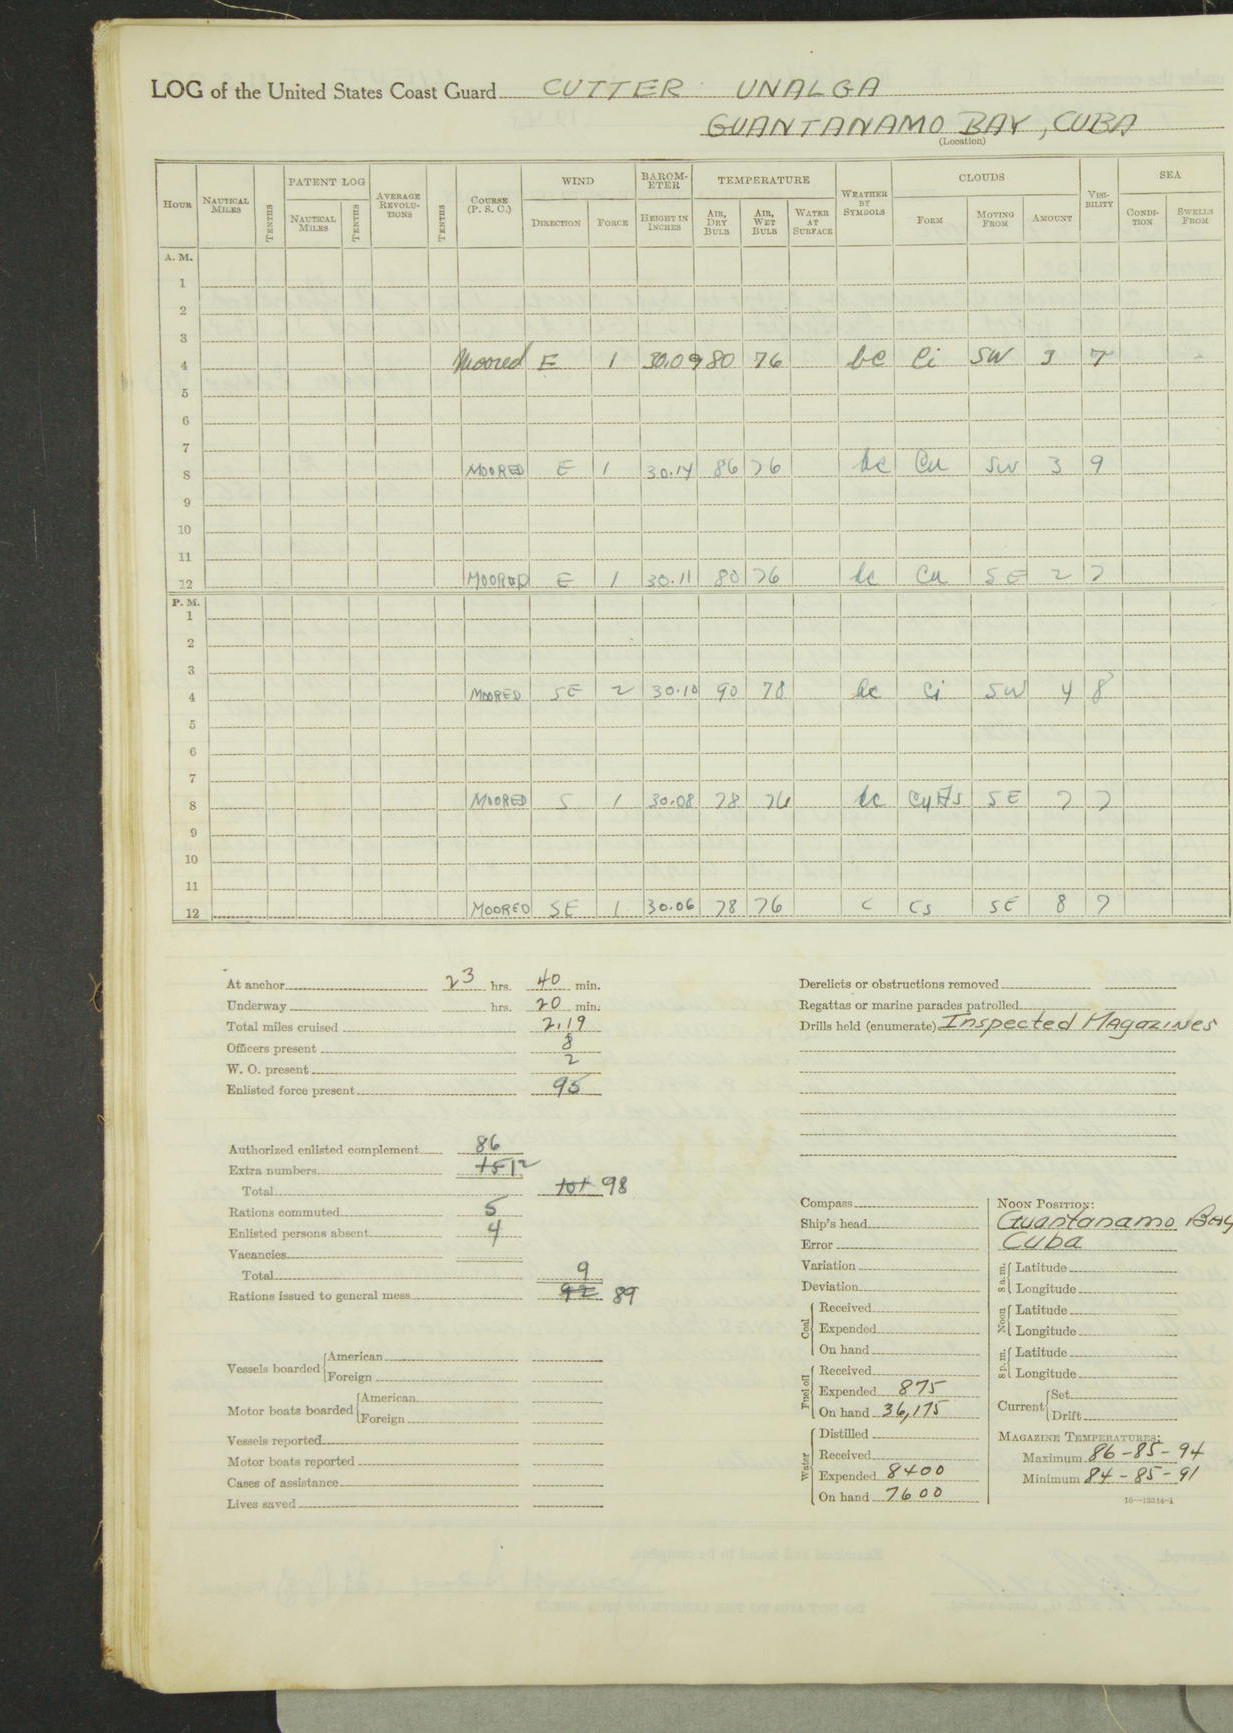 LOG of the United States Coast Guard CUTTER UNALGA
GUANTANAMO BAY, CUBA
(Location)
HOUR NAUTICAL MILES TENTHS PATENT LOG NAUTICAL MILES TENTHS AVERAGE REVOLUTIONS TENTHS COURSE (P. S. C.) WIND DIRECTION FORCE BAROMETER HEIGHT IN INCHES TEMPERATURE AIR, DRY BULB AIR, WET BULB WATER AT SURFACE WEATHER BY SYMBOLS CLOUDS FORM MOVING FROM AMOUNT VISIBILITY SEA CONDITION SWELLS FROM
A. M.
1
2
3
4 Moored E 1 30.09 80 76 bc Ci SW 3 7
5
6
7
8 MOORED E 1 30.14 86 76 bc Cu SW 3 9
9
10
11
12 MOORED E 1 30.11 80 76 bc Cu SE 2 7
P. M.
1
2
3
4 MOORED SE 2 30.10 90 78 bc Ci SW 4 8
5
6
7
8 MOORED S 1 30.08 78 76 bc SE 7 7
9
10
11
12 MOORED SE 1 30.06 78 76 c Cs SE 8 7
At anchor 23 hrs. 40 min.
Underway hrs. 20 min.
Total miles cruised 2.19
Officers present 8
W. O. present 2
Enlisted force present 95
Authorized enlisted complement 86
Extra numbers 15 12
Total 101 98
Rations commuted 5
Enlisted persons absent 4
Vacancies
Total 9
Rations issued to general mess 92 89
Vessels boarded American
Foreign
Motor boats boarded American
Foreign
Vessels reported
Motor boats reported
Cases of assistance
Lives saved
Derelicts or obstructions removed
Regattas or marine parades patrolled
Drills held (enumerate) Inspected Magazines
Compass
Ship's head
Error
Variation
Deviation
Coal Received
Expended
On hand
Fuel oil Received
Expended 875
On hand 36,175
Water Distilled
Received
Expended 8400
On hand 7600
NOON POSITION:
Guantanamo Bay
Cuba
8 a. m. Latitude
Longitude
Noon Latitude
Longitude
8 p. m. Latitude
Longitude
Current Set
Drift
MAGAZINE TEMPERATURES:
Maximum 86-85-94
Minimum 84-85-91